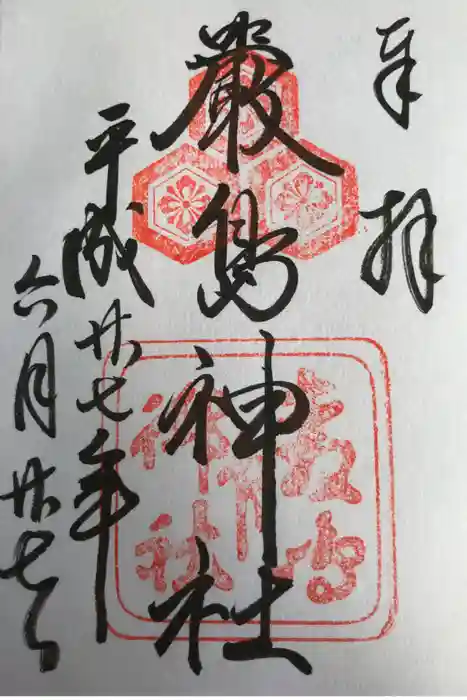 奉
拝
嚴島神社
平成廿七年
六月廿七日
嚴島
神社